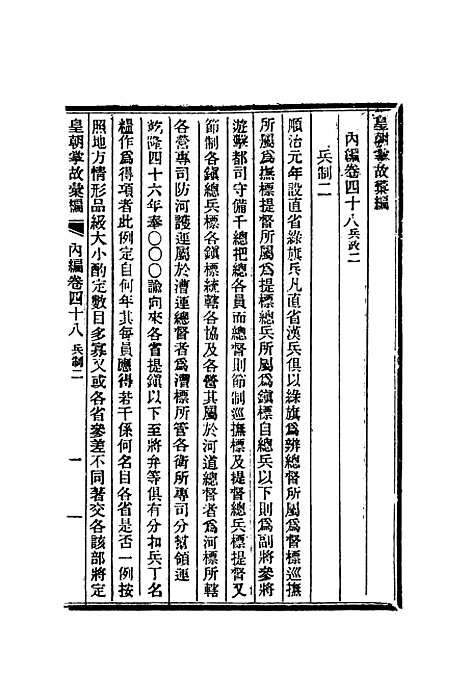 皇朝掌故彙編
內編卷四十八兵政二
兵制二
順治元年設直省綠旗兵凡直省漢兵俱以綠旗爲辨總督所屬爲督標巡撫
所屬爲撫標提督所屬爲提標總兵所屬爲鎭標自總兵以下則爲副將參將
遊擊都司守備千總把總各員而總督則節制巡撫標及提督總兵標提督又
節制各鎭總兵標各鎭統轄各協及各營其屬於河道總督者爲河標所轄
各營專司防河護運屬於漕運總督者爲漕標所管各衛所專司分幫領運
乾隆四十六年奉〇〇〇諭向來各省提鎭以下至將弁等俱有分扣兵丁名
糧作爲得項者此例定自何年其每員應得若干係何名目各省是否一例按
照地方情形品級大小酌定數目多寡又或各省參差不同著交各該部將定
皇朝掌故彙編 內編卷四十八 兵制二 一